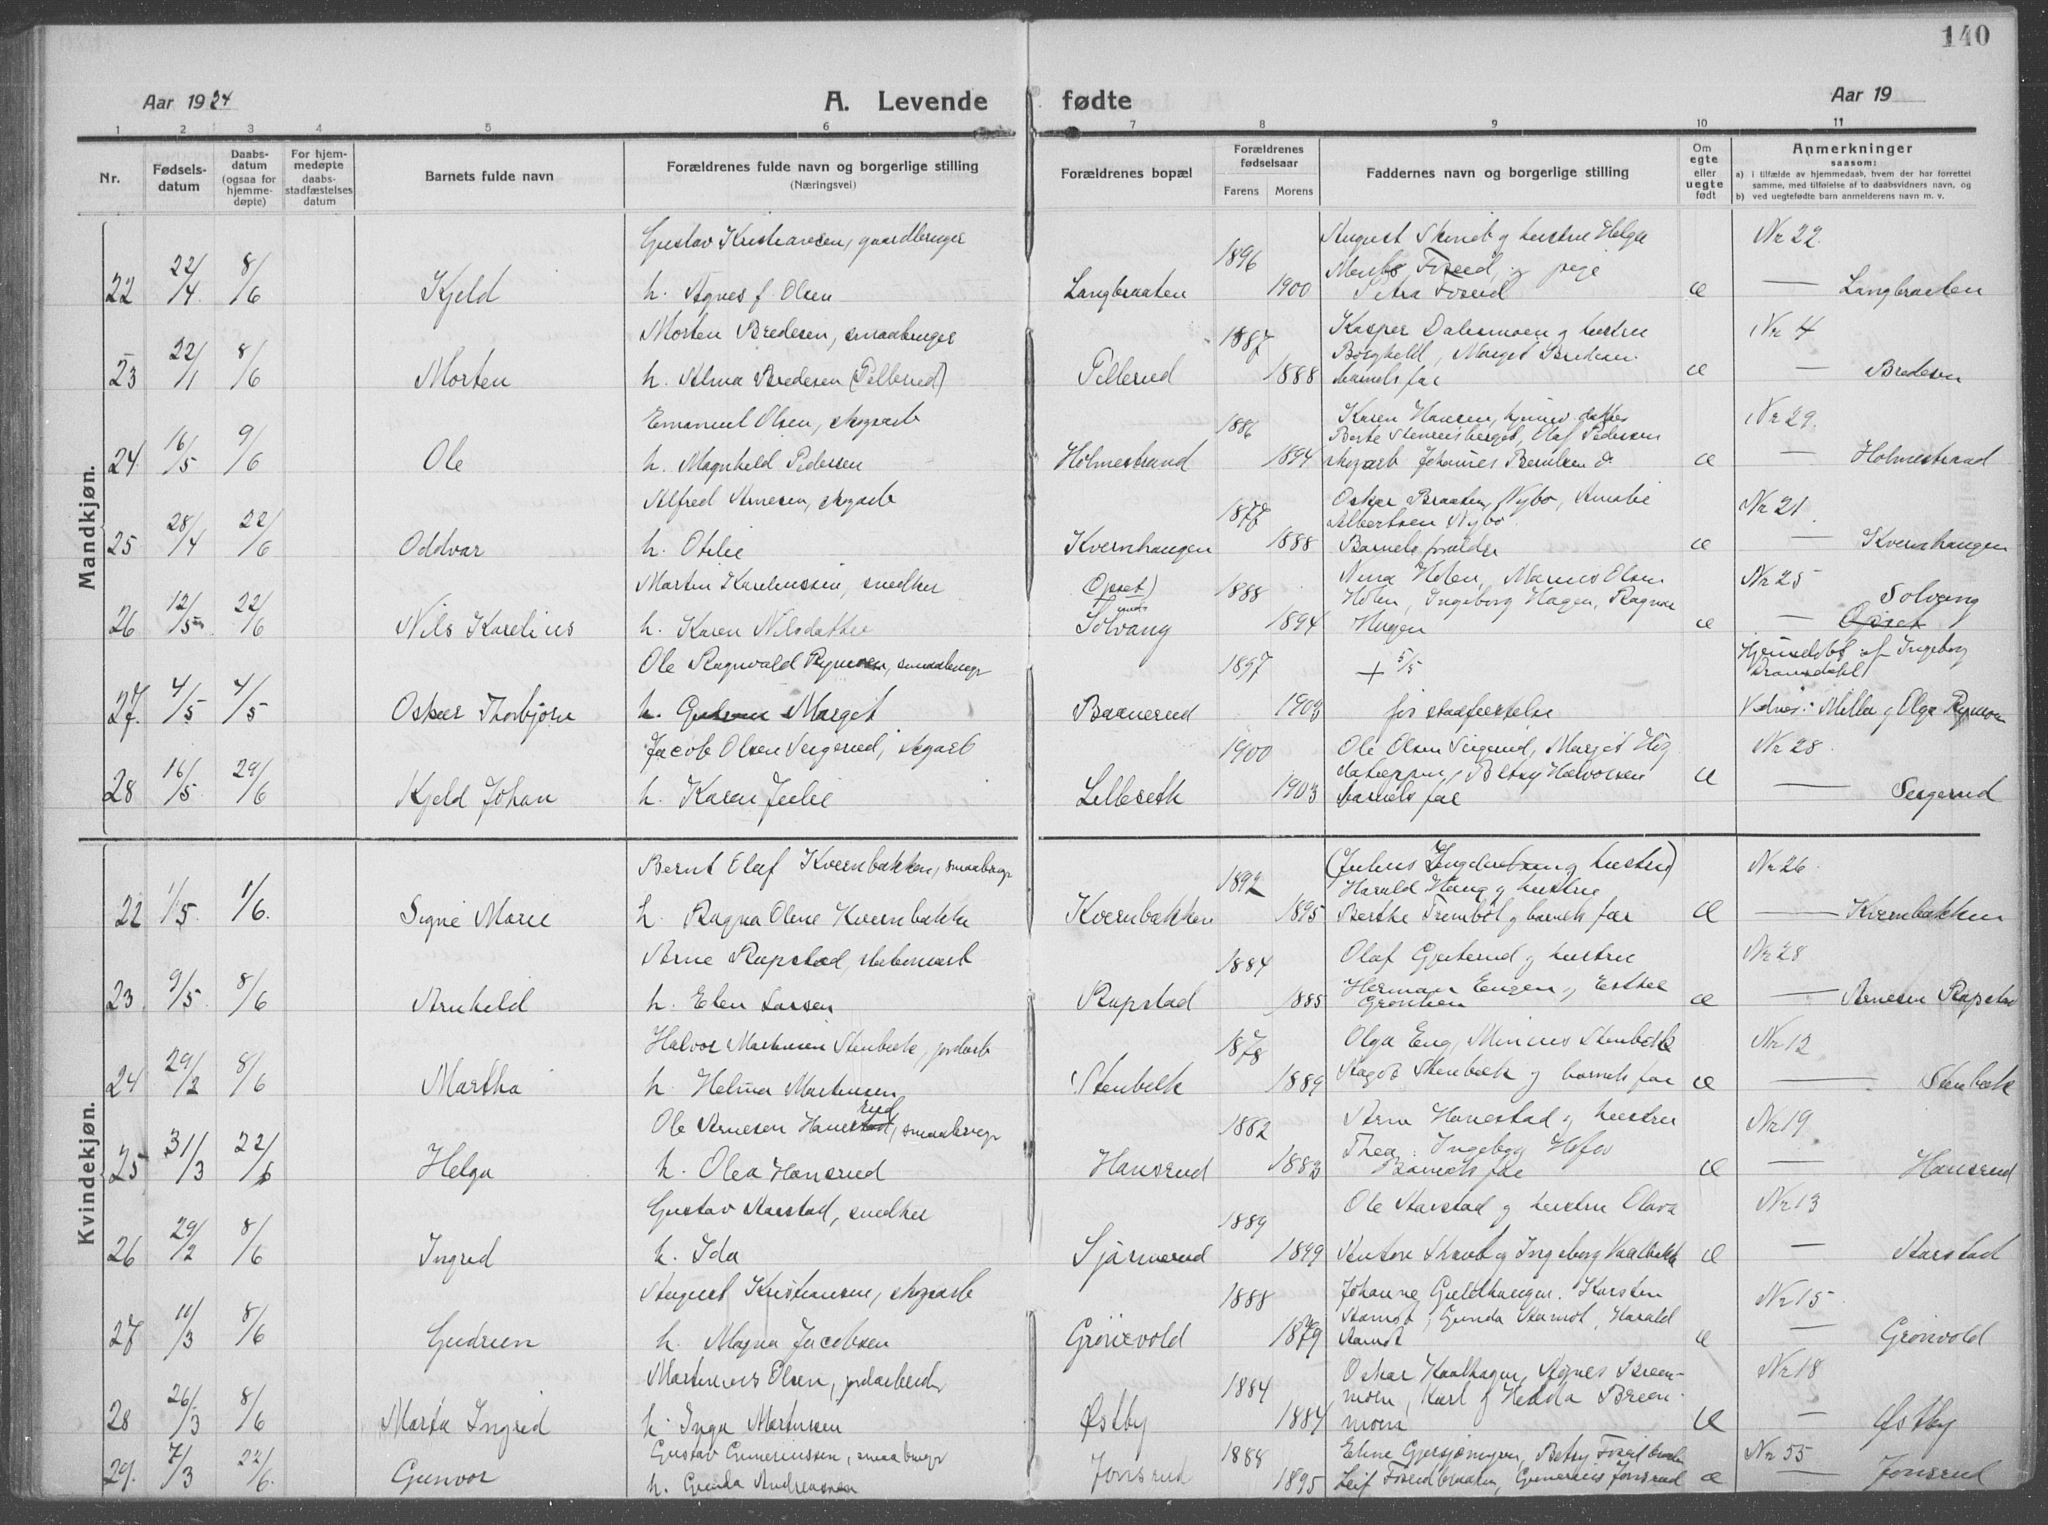 140
Aar 1924
A. Levende fødte
Aar 19
1 2 3 4 5 6 7 8 9 10 11
Nr.
Fødsels-
datum
Daabs-
datum
(ogsaa for
hjemme-
døpte)
For hjem-
medøpte
daabs-
stadfæstelses
datum
Barnets fulde navn
Forældrenes fulde navn og borgerlige stilling
(Næringsvei)
Forældrenes bopæl
Forældrenes
fødselsaar
Farens Morens
Faddernes navn og borgerlige stilling
Om
egte
eller
uegte
født
Anmerkninger
saasom:
a) i tilfælde av hjemmedaab, hvem der har forrettet
samme, med tilføielse af to daabsvidners navn, og
b) ved uegtefødte barn anmelderens navn m. v.
Mandkjøn.
Gustav Kristiansen, gaardbruger 1896 August og hustru Helga Nr 22
22 22/4 8/6 Kjeld h. Agnes f. Olsen Langbraaten 1900 Petra Fosrud æ — Langbraaten
Morten Bredesen, smaabruger 1887 Kasper Dalesmoen og hustru Nr 4
Borghild, Margit Bredesen
23 22/1 8/6 Morten h. Alma Bredesen (Pellerud) Pellerud 1888 barnets far æ — Bredesen
Emanuel Olsen, skogarb 1886 Karen Hansen, Nr 29
Olaf Pedersen
24 16/5 9/6 Ole h. Magnhild Pedersen Holmestrand 1894 skogarb Johannes æ — Holmestrand
Alfred Arnesen, skogarb Oskar Braaten, Nybo, Amalie Nr 21
Albertsen Nybo
25 28/4 22/6 Oddvar h. Otilie Kvernhaugen 1888 Barnets forældre æ — Kvernhaugen
Martin Karelinssen, snedker Opset) 1888 Nina Holen, Marius Olsen Nr 25
Holen, Ingeborg Hagen, Ragna Solvang
26 12/5 22/6 Nils Karelius h. Karen Nilsdatter Solvang 1894 Hagen æ — Opset
Ole Ragnvald Rymoen, smaabrugr 1897 + 5/5 Hjemmedøbt af Ingeborg
27. 4/5 4/5 Oskar Thorbjørn h. Gudrun Margit Baanerud 1903 før stadfæstelse Vidner: Milla og Olga Rymoen
Jacob Olsen Seigerud, skogarb 1900 Ole Olsen Seigerud, Nr 28
Betsy Halvorsen
28 16/5 29/6 Kjeld Johan h. Karen Julie Lilleseth 1903 barnets far æ — Seigerud
Kvindekjøn.
Bernt Olaf Kvernbækken, smaabrugr 1892 (Julius og hustru) Nr 26
Harald Haug og hustru
22 1/5 1/6. Signe Marie h. Ragna Oline Kvernbække Kvernbækken 1895 Berthe og barnets far æ — Kvernbækken
Arne Rupstad, 1884 Olaf Gjuterud og hustru Nr 28
Herman Engen og Esther
23 9/5 8/6 Arnhild h. Elen Larsen Rupstad 1885 æ — Arnesen Rupstad
Halvor Martinsen Stenbæk, jordarb 1878 Olga Eng, Minius Stenbæk Nr 12
24 29/2 8/6 Martha h. Helma Martinsen Stenbek 1889 Stenbæk og barnets far æ — Stenbæk
Ole Arnesen Hanestad rud, smaabrugr 1882 Arne Hanestad og hustru Nr 19
Thea Ingeborg
25 31/3 22/6 Helga h. Olea Hansrud Hansrud 1883 Barnets far æ — Hansrud
Gustav Aarstad, snedker 1889 Ole Aarstad og hustru Olava Nr 13
26 29/2 8/6 Ingrid h. Ida Sjärnerud 1899 Anton og Ingeborg æ — Aarstad
August Kristiansen, skogarb 1888 Johanne Guldhaugen. Karsten Nr 15
Aamot, Gunda Aamot, Harald
27 11/3 8/6 Gudrun h. Magna Jacobsen Grönvold 1879 Aamot æ — Grönvold
Martinius Olsen, jordarbeider 1884 Oskar Kaalhagen, Agnes Breen- Nr 18
moen, Karl og Hedda Breen-
28 26/3 8/6 Marta Ingrid h. Inga Martinsen Østby 1884 moen æ — Østby
Gustav Gunerinssen, smaabrugr 1888 Eline Betsy Nr 55
29. 7/3 22/6. Gunvor h. Gunda Andreassen Jonsrud 1895 Leif Fosrudbraaten, Gunerius Jonsrud æ — Jonsrud